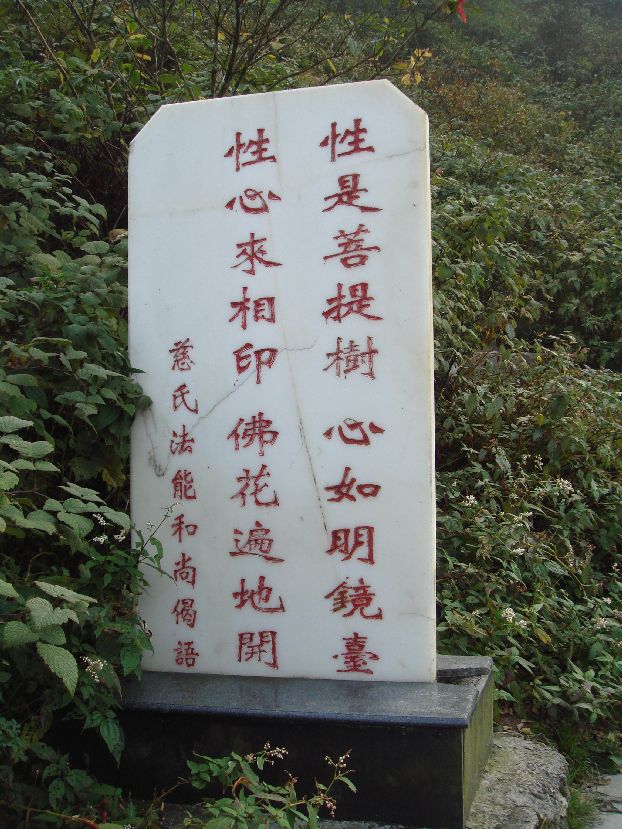 性是菩提樹心如明鏡臺
性心來相印佛花遍地開
慈氏法能和尚偈語